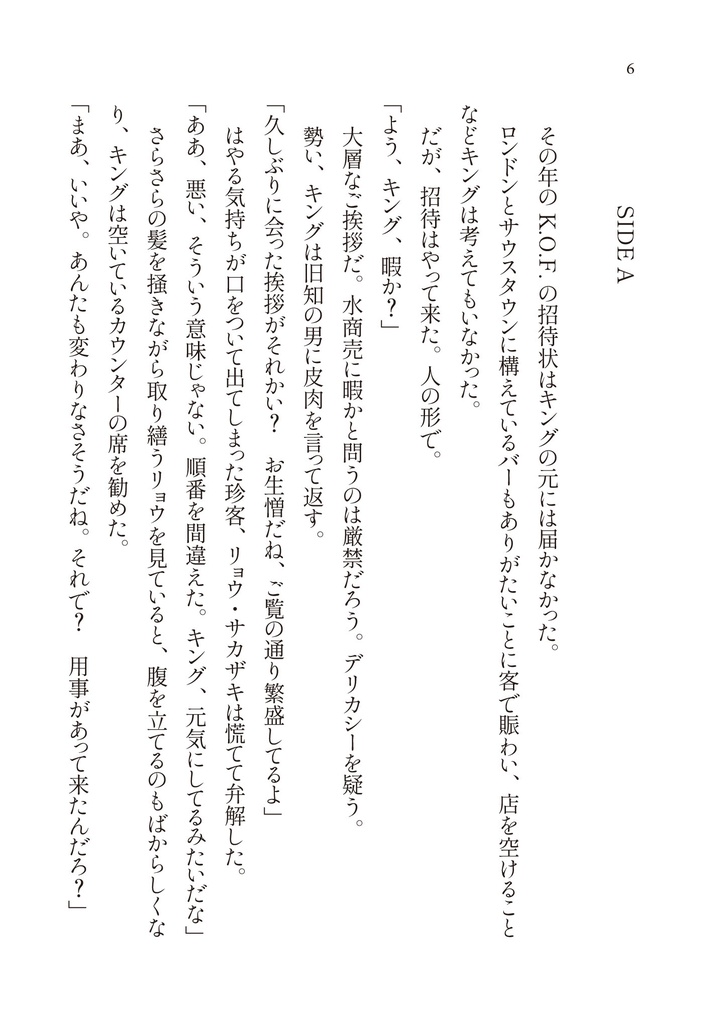 6
SIDE A
その年の K.O.F. の招待状はキングの元には届かなかった。
ロンドンとサウスタウンに構えているバーもありがたいことに客で賑わい、店を空けること
などキングは考えてもいなかった。
だが、招待はやって来た。人の形で。
「よう、キング、暇か？」
大層なご挨拶だ。水商売に暇かと問うのは厳禁だろう。デリカシーを疑う。
勢い、キングは旧知の男に皮肉を言って返す。
「久しぶりに会った挨拶がそれかい？　お生憎だね、ご覧の通り繁盛してるよ」
はやる気持ちが口をついて出てしまった珍客、リョウ・サカザキは慌てて弁解した。
「ああ、悪い、そういう意味じゃない。順番を間違えた。キング、元気にしてるみたいだな」
さらさらの髪を掻きながら取り繕うリョウを見ていると、腹を立てるのもばからしくな
り、キングは空いているカウンターの席を勧めた。
「まあ、いいや。あんたも変わりなさそうだね。それで？　用事があって来たんだろ？」